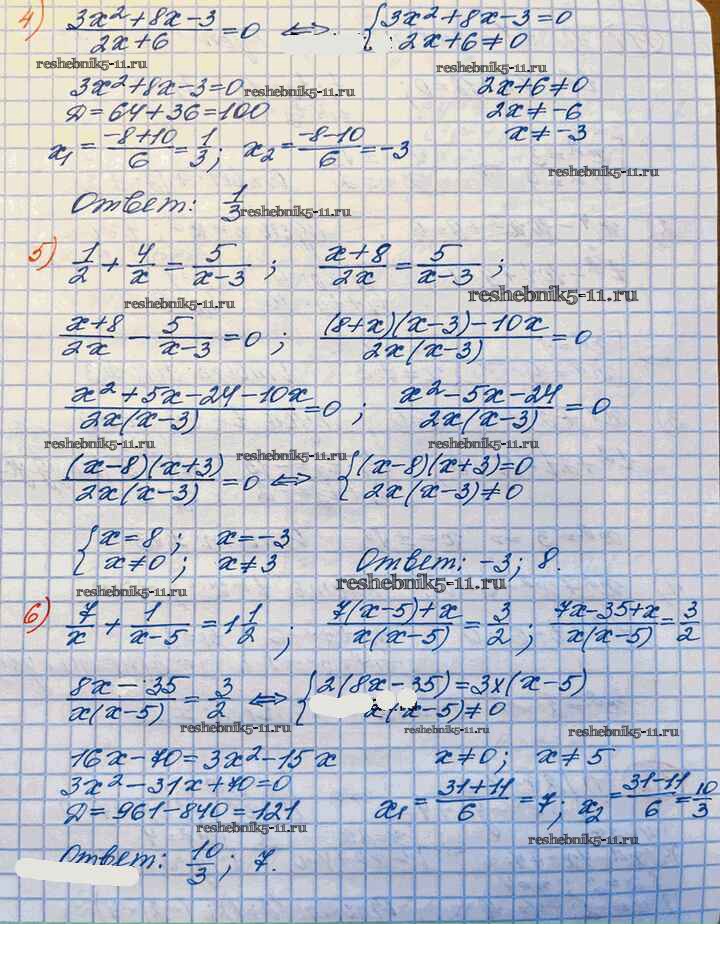 4) (3x²+8x-3)/(2x+6) = 0 <=> { 3x²+8x-3=0
2x+6≠0
reshebnik5-11.ru reshebnik5-11.ru
3x²+8x-3=0 2x+6≠0
reshebnik5-11.ru
D=64+36=100 2x≠-6
x₁ = (-8+10)/6 = 1/3; x₂ = (-8-10)/6 = -3 x≠-3
reshebnik5-11.ru
Ответ: 1/3
reshebnik5-11.ru
5) 1/2 + 4/x = 5/(x-3); (x+8)/2x = 5/(x-3);
reshebnik5-11.ru reshebnik5-11.ru
(x+8)/2x - 5/(x-3) = 0; ((8+x)(x-3)-10x)/(2x(x-3)) = 0
(x²+5x-24-10x)/(2x(x-3)) = 0; (x²-5x-24)/(2x(x-3)) = 0
reshebnik5-11.ru reshebnik5-11.ru reshebnik5-11.ru
((x-8)(x+3))/(2x(x-3)) = 0 <=> { (x-8)(x+3)=0
2x(x-3)≠0
{ x=8; x=-3
x≠0; x≠3 Ответ: -3; 8.
reshebnik5-11.ru reshebnik5-11.ru
6) 7/x + 1/(x-5) = 1 1/2; (7(x-5)+x)/(x(x-5)) = 3/2; (7x-35+x)/(x(x-5)) = 3/2
(8x-35)/(x(x-5)) = 3/2 <=> { 2(8x-35)=3x(x-5)
x(x-5)≠0
reshebnik5-11.ru reshebnik5-11.ru reshebnik5-11.ru
16x-70=3x²-15x x≠0; x≠5
3x²-31x+70=0
D=961-840=121 x₁ = (31+11)/6 = 7; x₂ = (31-11)/6 = 10/3
reshebnik5-11.ru reshebnik5-11.ru
Ответ: 10/3; 7.